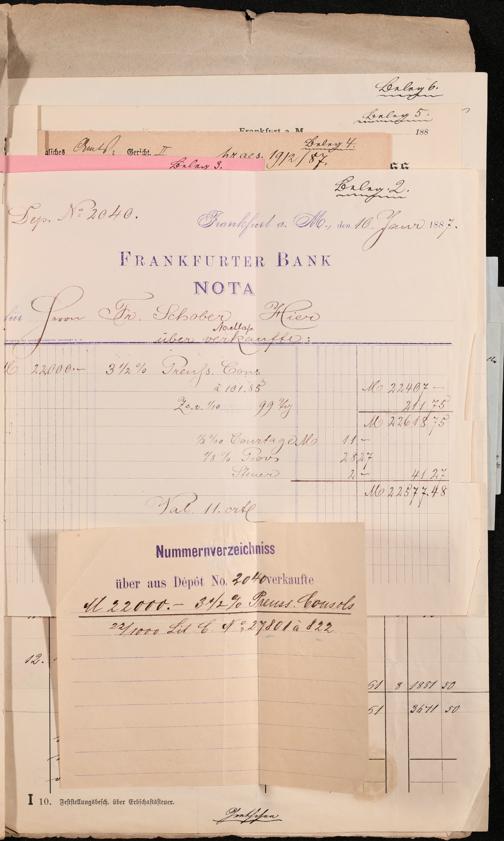 Beleg 6.
Beleg 5.
Frankfurt a. M. 188
Beleg 4.
Amts Gericht. II 1912/87.
Beleg 3.
Beleg 2.
Dep. No 2040.
Frankfurt a. M., den 10. Janr 1887.
FRANKFURTER BANK
NOTA
Herrn Fr. Schober Hier
über verkaufte:
M 22000.— 3 1/2 % Preuss. Cons
à 101.85 M 22407 —
99 Tg 211 75
M 22618 75
Courtage M 11 —
Prov 28 27
Steuer 2 — 41.27
M 22577.48
Val 11. crt
Nummernverzeichniss
über aus Dépôt No. 2040 verkaufte
M 22000.— 3 1/2 % Preuss. Consols
22/1000 Lit C. No 27801 à 822
12.
51 8 1881 50
51 3671 50
I 10. Feststellungsbesch. über Erbschaftssteuer.